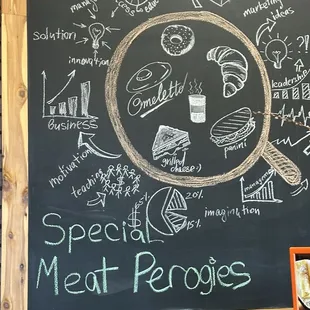 marketing
ideas
solution
innovation
leadership
omelette
Business
panini
grilled
cheese :)
motivation
teaching
management
$
65%
20%
15%
imagination
Special
Meat Perogies